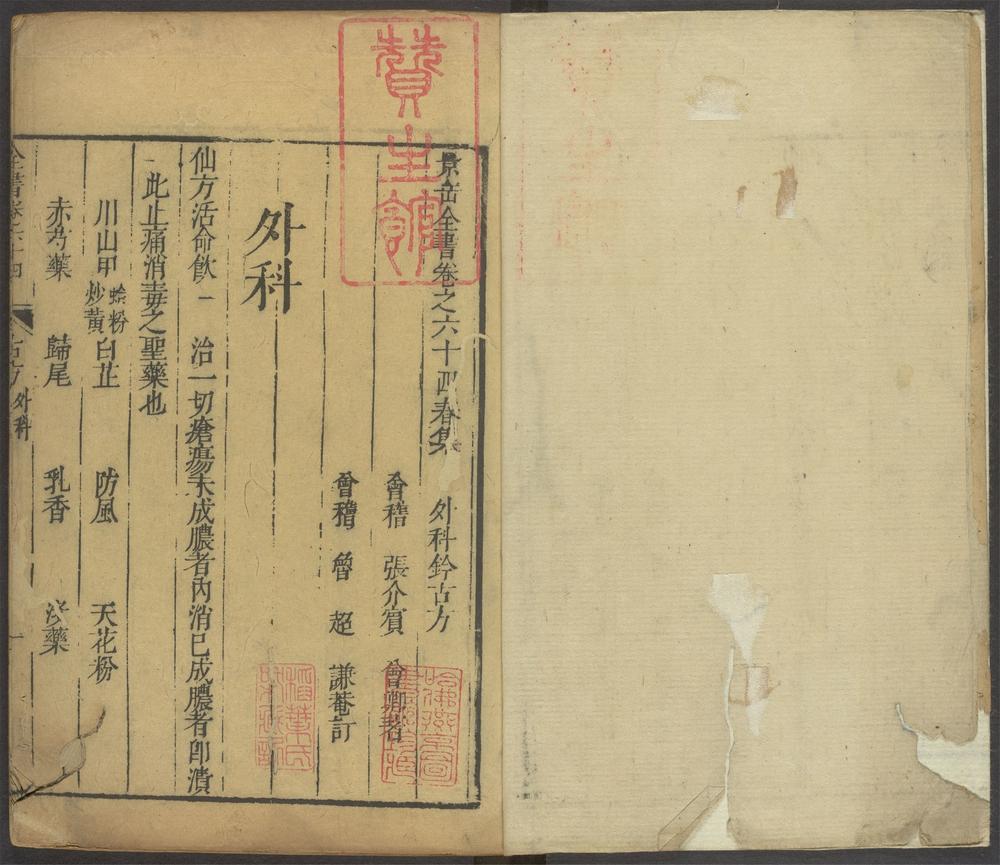 景岳全書卷之六十四春集 外科鈐古方
會稽 張介賓 會卿著
會稽 魯 超 謙菴訂
外科
仙方活命飲一 治一切瘡瘍未成膿者內消已成膿者卽潰
此止痛消毒之聖藥也
川山甲 蛤粉炒黃 白芷 防風 天花粉
赤芍藥 歸尾 乳香 沒藥
全書卷六十四 古方 外科 一
贊生館
哈佛燕京圖書館